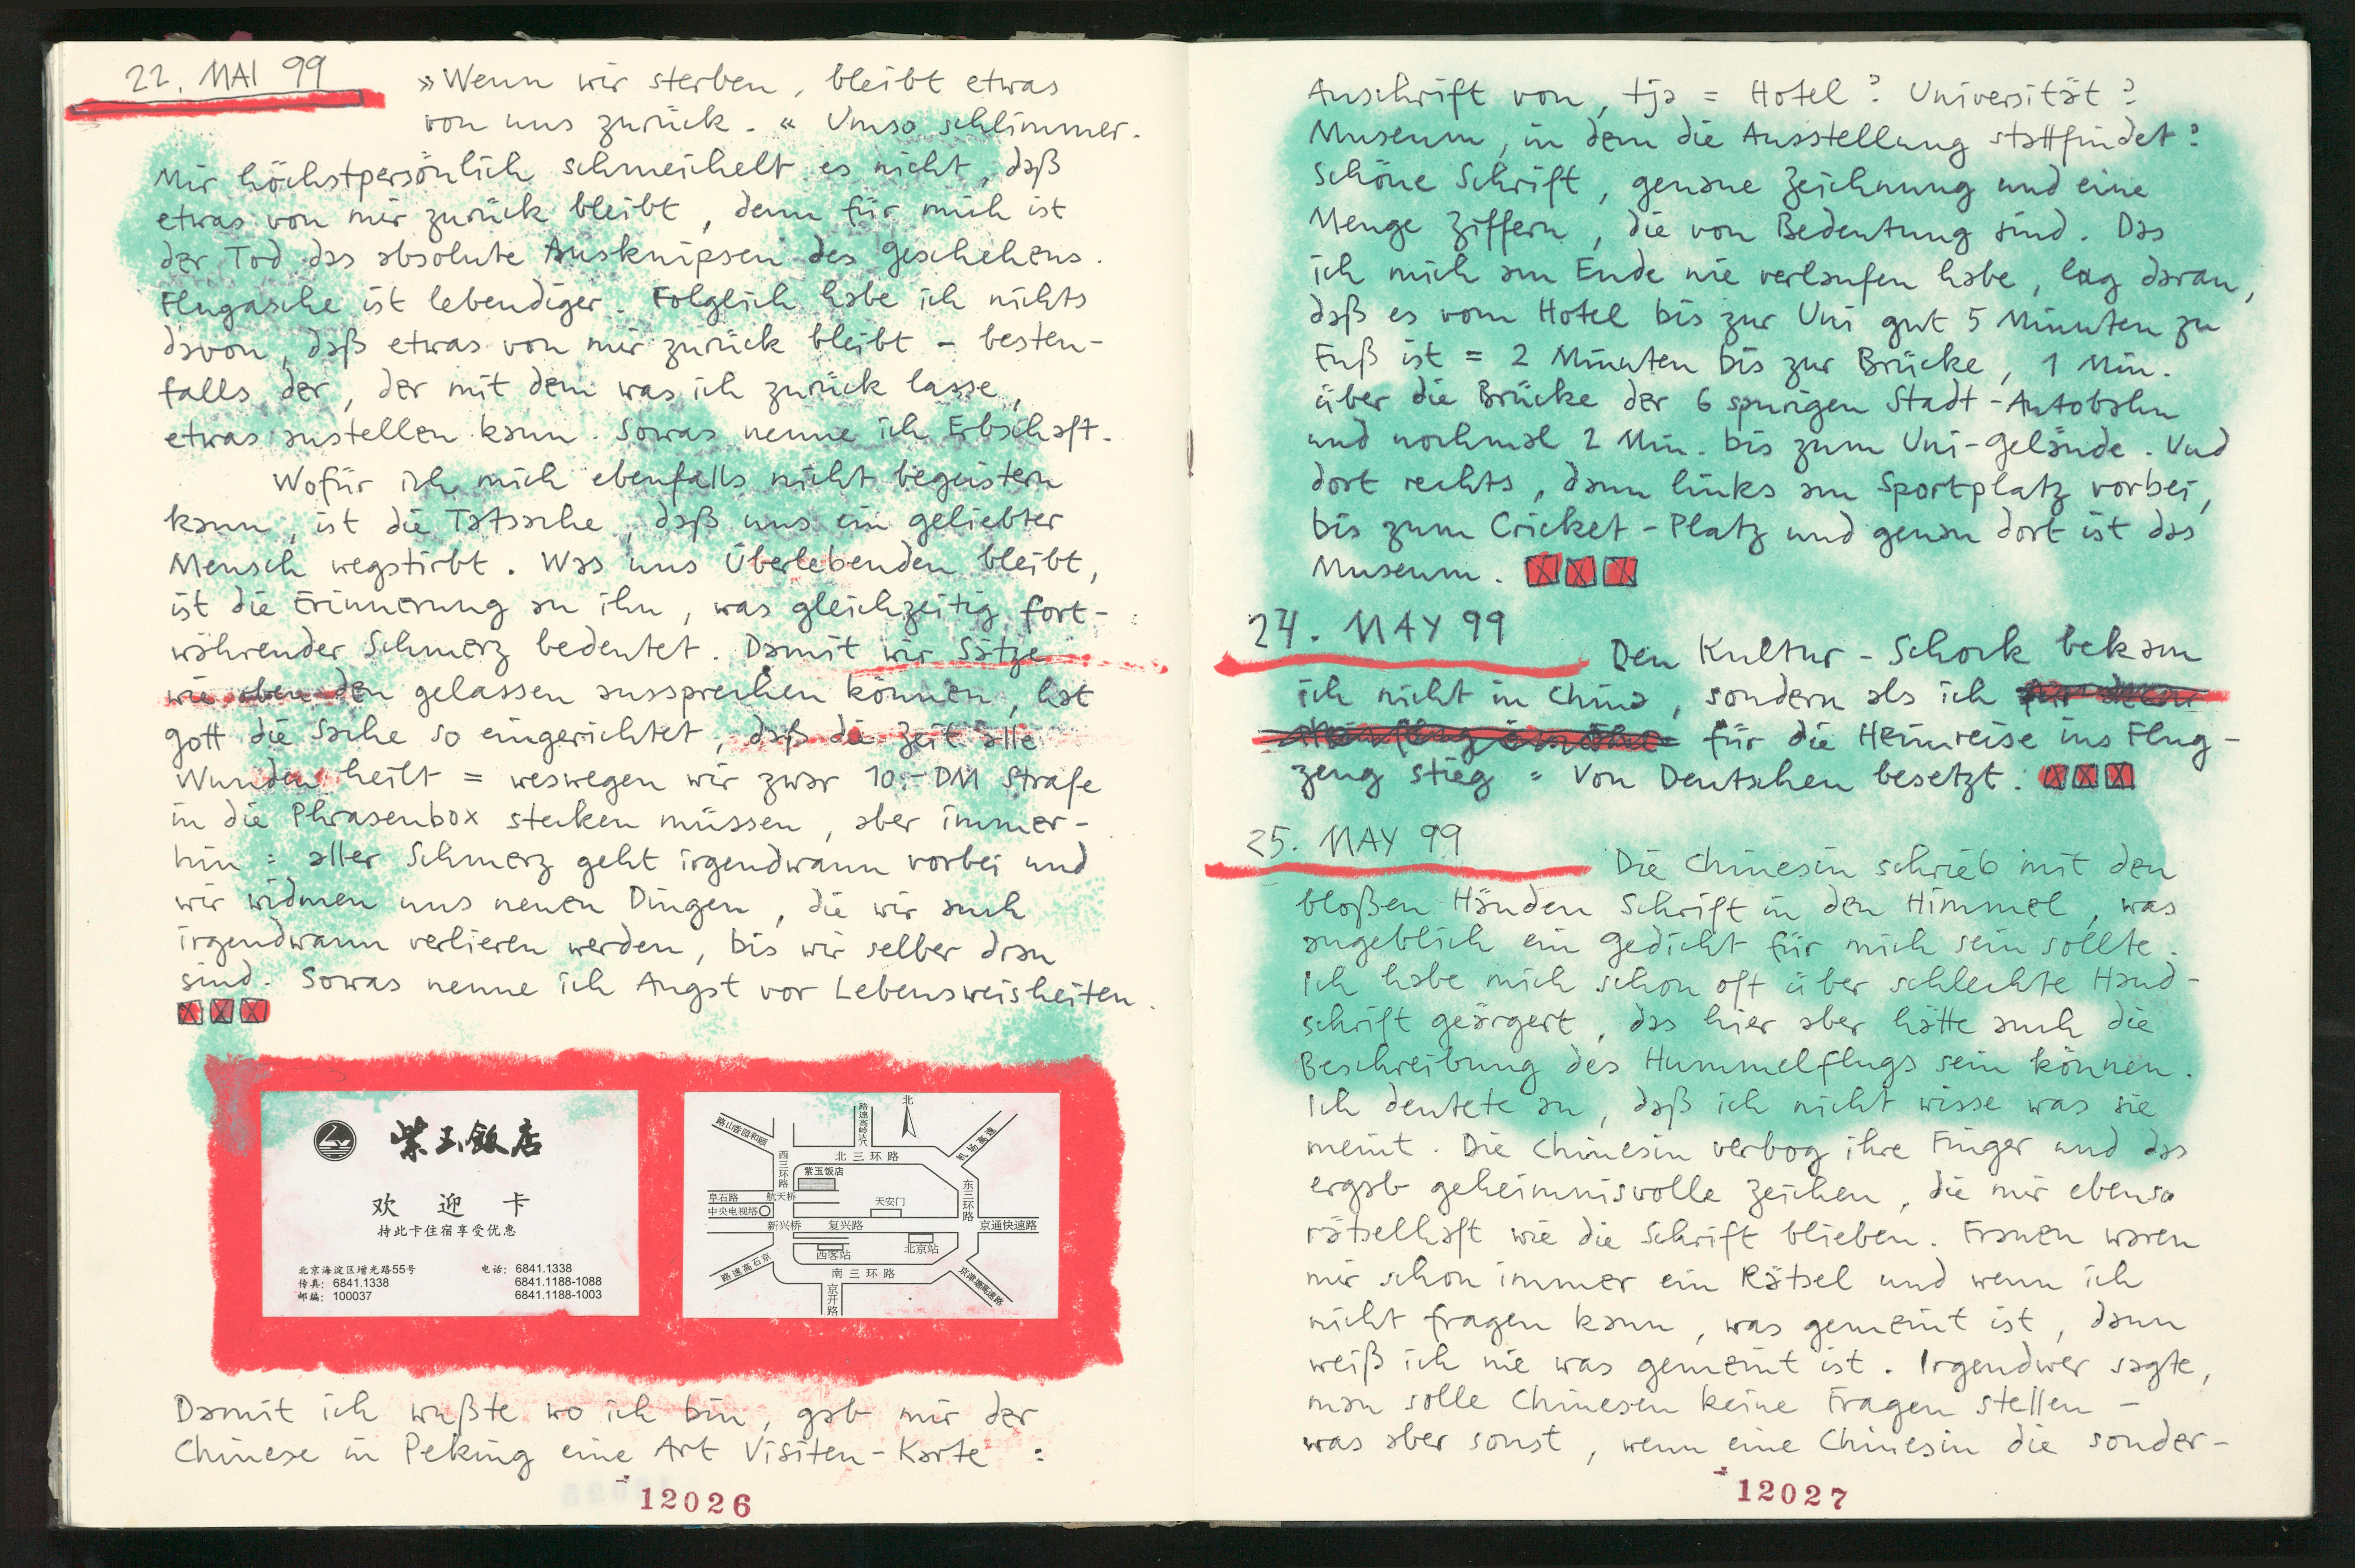 22. MAI 99
»Wenn wir sterben, bleibt etwas
von uns zurück.« Umso schlimmer.
Mir höchstpersönlich schmeichelt es nicht, daß
etwas von mir zurück bleibt, denn für mich ist
der Tod das absolute Ausknipsen des Geschehens.
Flugasche ist lebendiger. Folglich habe ich nichts
davon, daß etwas von mir zurück bleibt - besten-
falls der, der mit dem was ich zurück lasse,
etwas anstellen kann. Sowas nenne ich Erbschaft.
Wofür ich mich ebenfalls nicht begeistern
kann, ist die Tatsache, daß uns ein geliebter
Mensch wegstirbt. Was uns Überlebenden bleibt,
ist die Erinnerung an ihn, was gleichzeitig fort-
währender Schmerz bedeutet. Damit wir Sätze
wie oben den gelassen aussprechen können, hat
Gott die Sache so eingerichtet, daß die Zeit alle
Wunden heilt = weswegen wir zwar 10.- DM Strafe
in die Phrasenbox stecken müssen, aber immer-
hin = aller Schmerz geht irgendwann vorbei und
wir widmen uns neuen Dingen, die wir auch
irgendwann verlieren werden, bis wir selber dran
sind. Sowas nenne ich Angst vor Lebensweisheiten.
紫玉飯店
欢 迎 卡
持此卡住宿享受优惠
北京海淀区增光路55号 电话: 6841.1338
传真: 6841.1338 6841.1188-1088
邮编: 100037 6841.1188-1003
北
路山香园和颐
西三环路
北三环路
机场高速
紫玉饭店
东三环路
阜石路
航天桥
天安门
中央电视塔
新兴桥
复兴路
京通快速路
西客站
北京站
路速高石京
南三环路
京津塘高速路
京开路
Damit ich wußte wo ich bin, gab mir der
Chinese in Peking eine Art Visiten-Karte =
12026
Anschrift von, tja = Hotel? Universität?
Museum, in dem die Ausstellung stattfindet?
Schöne Schrift, genaue Zeichnung und eine
Menge Ziffern, die von Bedeutung sind. Das
ich mich am Ende nie verlaufen habe, lag daran,
daß es vom Hotel bis zur Uni gut 5 Minuten zu
Fuß ist = 2 Minuten bis zur Brücke, 1 Min.
über die Brücke der 6 spurigen Stadt-Autobahn
und nochmal 2 Min. bis zum Uni-Gelände. Und
dort rechts, dann links am Sportplatz vorbei,
bis zum Cricket-Platz und genau dort ist das
Museum.
24. MAY 99
Den Kultur-Schock bekam
ich nicht in China, sondern als ich
für die Heimreise ins Flug-
zeug stieg = Von Deutschen besetzt.
25. MAY 99
Die Chinesin schrieb mit den
bloßen Händen Schrift in den Himmel, was
angeblich ein Gedicht für mich sein sollte.
Ich habe mich schon oft über schlechte Hand-
schrift geärgert, das hier aber hätte auch die
Beschreibung des Hummelflugs sein können.
Ich deutete an, daß ich nicht wisse was sie
meint. Die Chinesin verbog ihre Finger und das
ergab geheimnisvolle Zeichen, die mir ebenso
rätselhaft wie die Schrift blieben. Frauen waren
mir schon immer ein Rätsel und wenn ich
nicht fragen kann, was gemeint ist, dann
weiß ich nie was gemeint ist. Irgendwer sagte,
man solle Chinesen keine Fragen stellen -
was aber sonst, wenn eine Chinesin die sonder-
12027